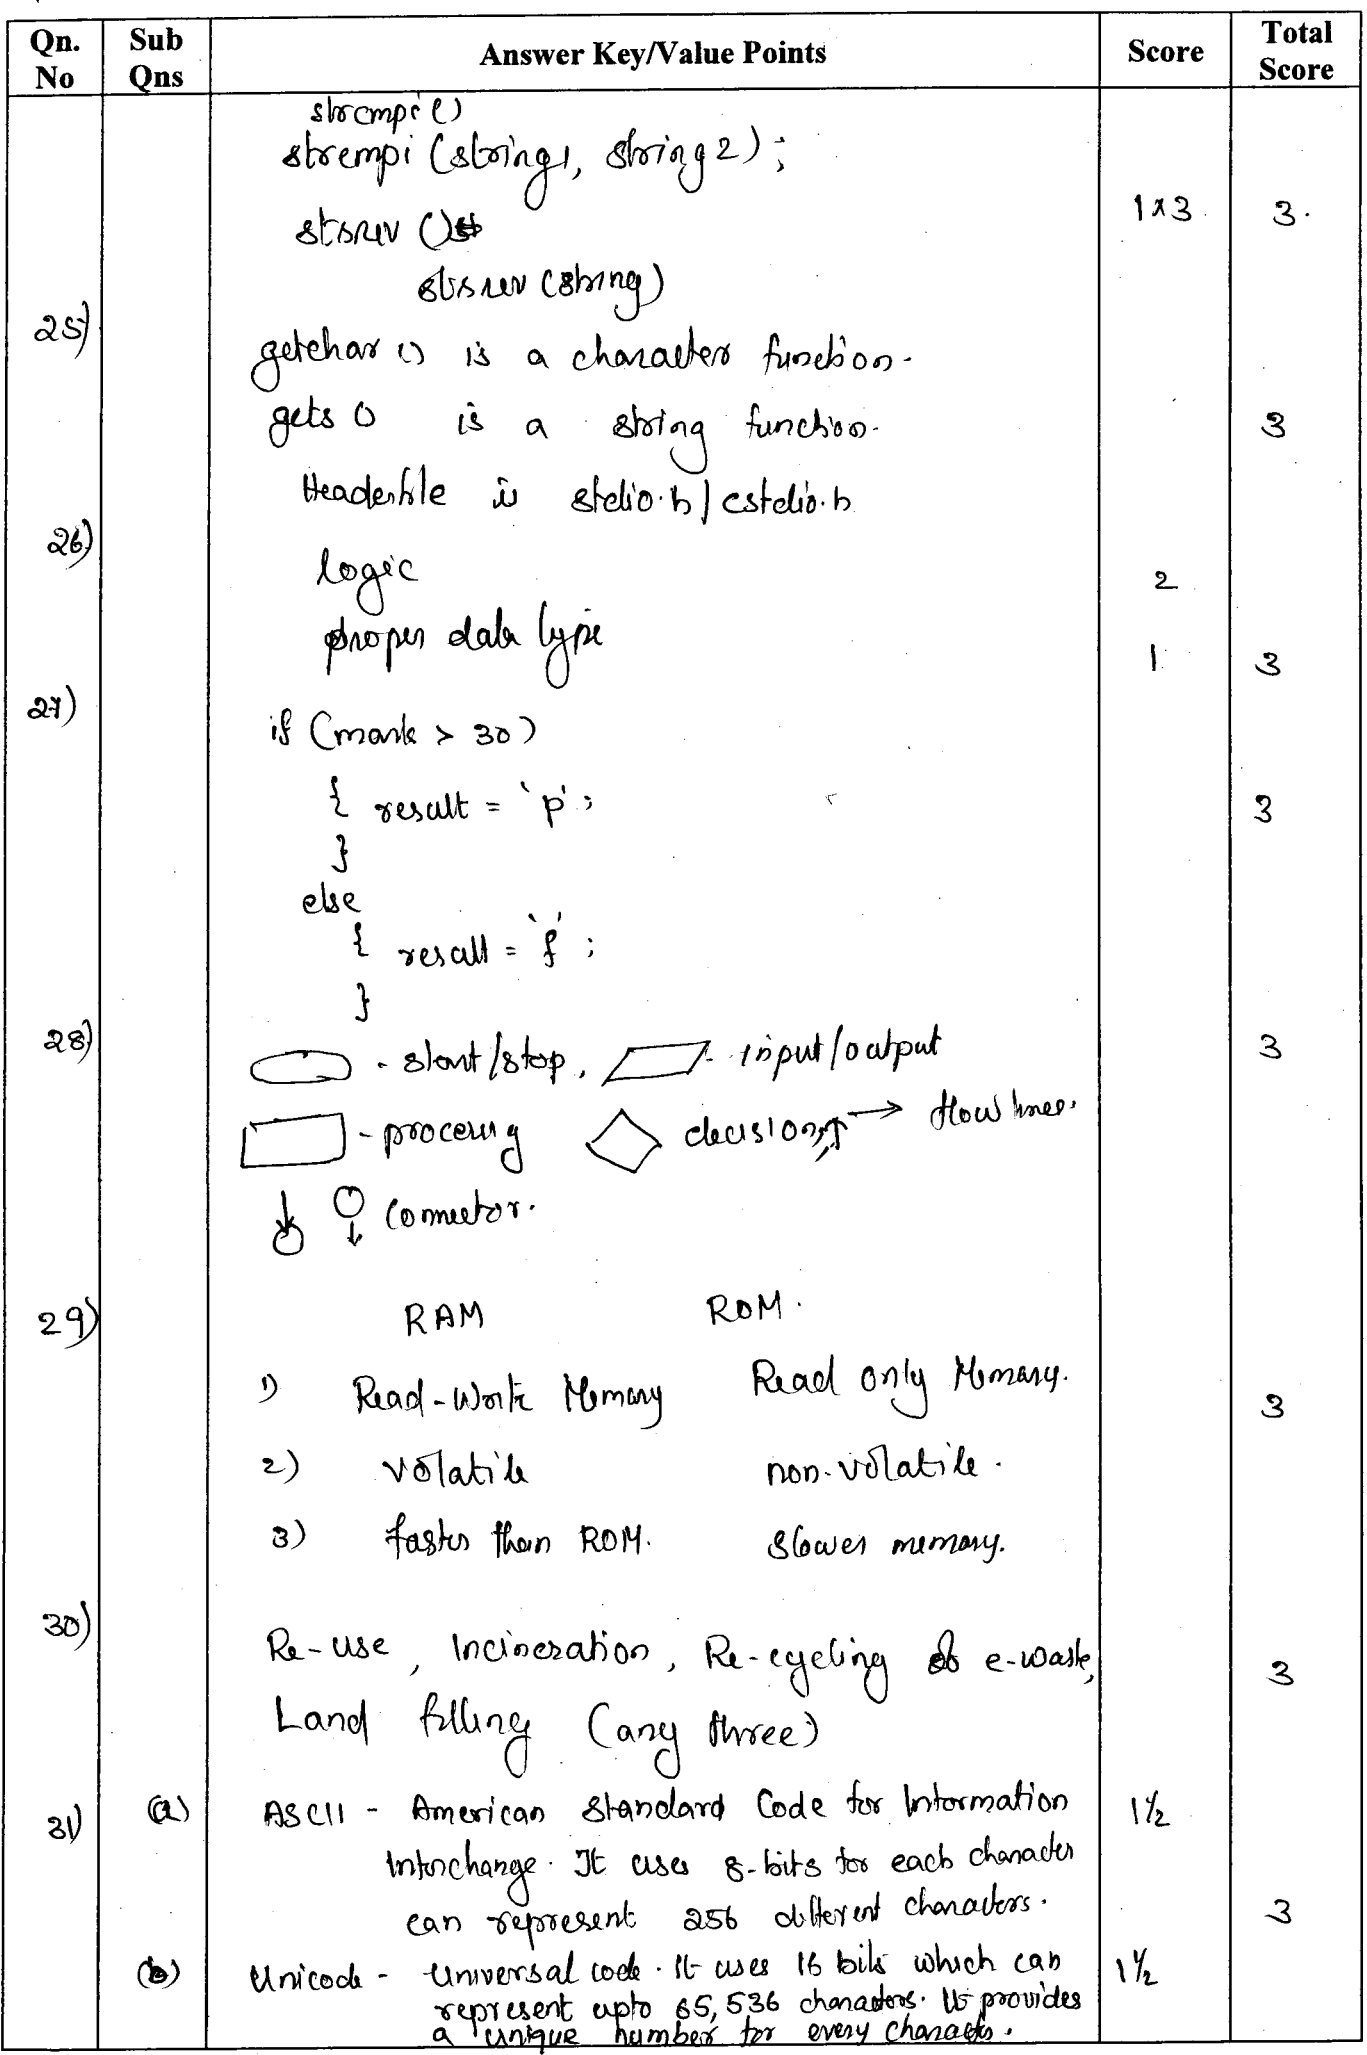 Qn. No Sub Qns Answer Key/Value Points Score Total Score
strcmpi ()
strcmpi (string1, string 2) ;
1x3 3.
strrev ()
strrev (string)
25)
getchar () is a character function.
gets () is a string function. 3
Headerfile is stdio.h / cstdio.h
26)
logic 2
proper data type 1 3
27)
if (mark > 30)
{ result = 'p' ; 3
}
else
{ result = 'f' ;
}
28) 3
- start/stop, - input/output
- processing decision, flow lines.
connector.
29) RAM ROM.
1) Read-Write Memory Read only Memory. 3
2) volatile non-volatile.
3) faster than ROM. slower memory.
30)
Re-use, Incineration, Re-cycling of e-waste, 3
Land filling (any three)
31) (a) ASCII - American Standard Code for Information 1½
Interchange. It uses 8-bits for each character
can represent 256 different characters. 3
(b) Unicode - Universal code. It uses 16 bits which can 1½
represent upto 65,536 characters. It provides
a unique number for every character.